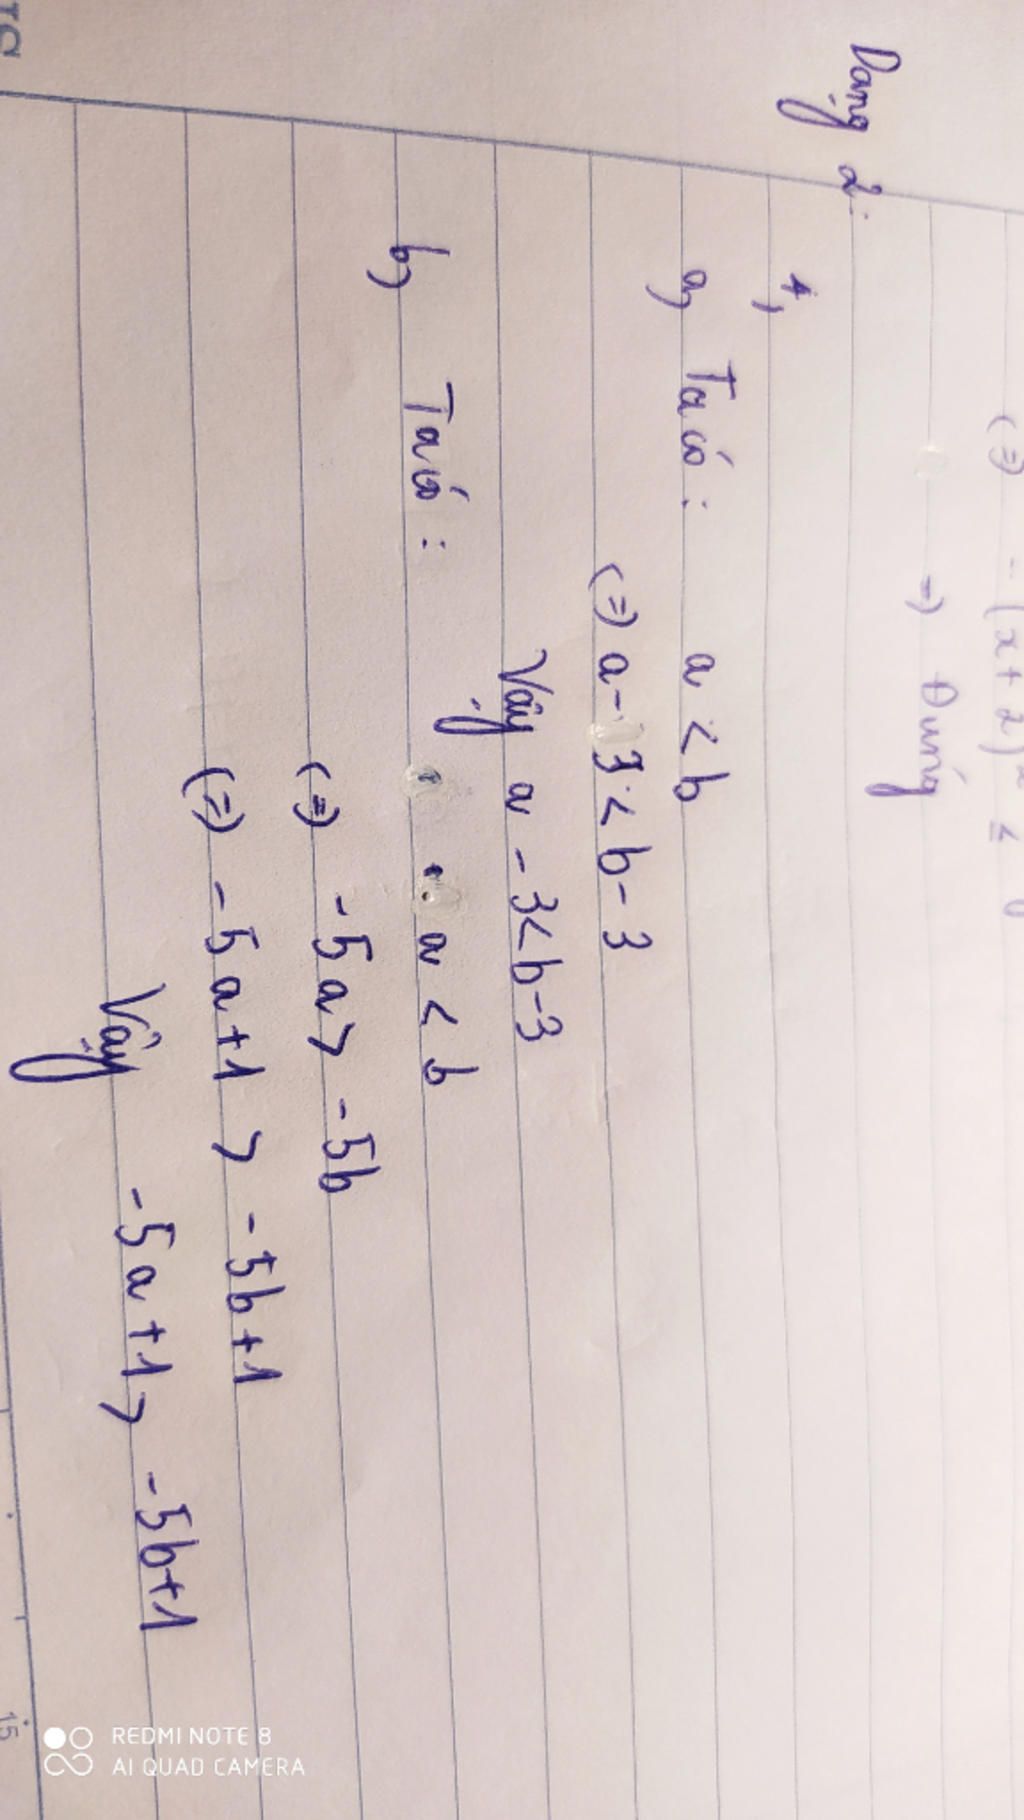 (=) -(x+2)² ≤ 0
=) Đúng
Dạng 2:
1,
a, Ta có: a < b
(=) a - 3 < b - 3
Vậy a - 3 < b - 3
b, Ta có: a < b
(=) -5a > -5b
(=) -5a + 1 > -5b + 1
Vậy -5a + 1 > -5b + 1
15
REDMI NOTE 8
AI QUAD CAMERA